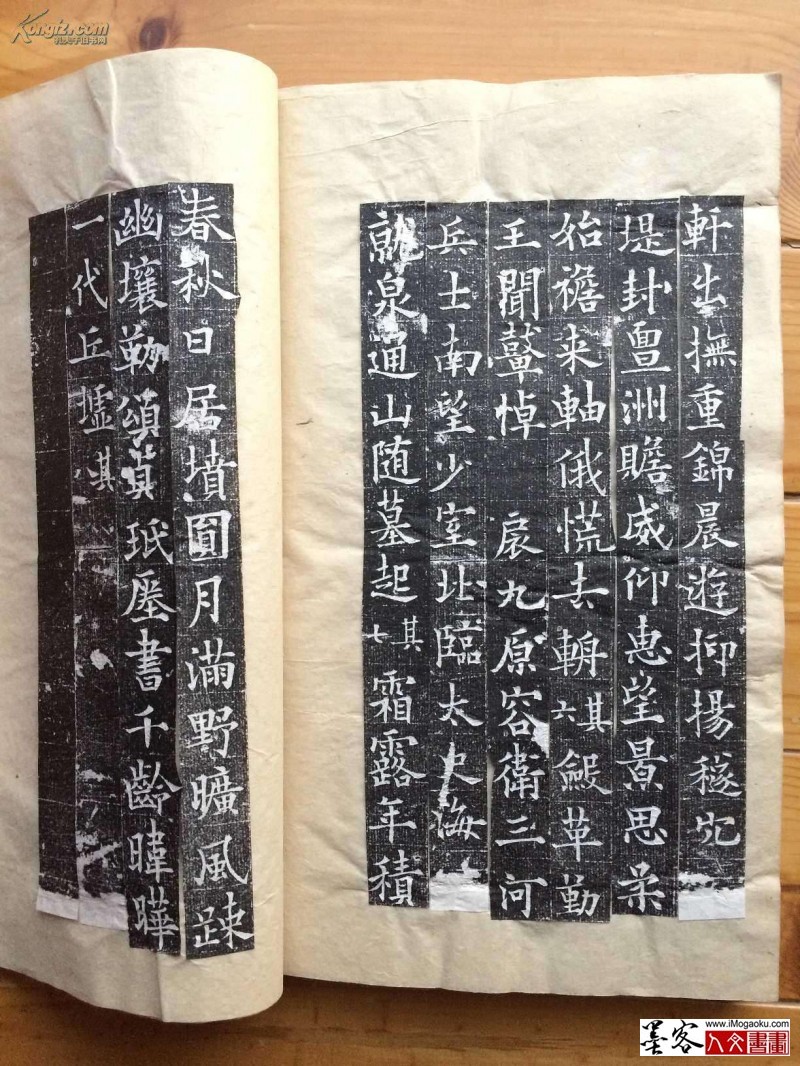 軒出撫重錦晨遊抑揚穟
堤封亶洲瞻威仰惠望景思柔
始襜来軸俄慌去輈其六繐革勤
王聞鼙悼扆九原容衛三河
兵士南望少室北臨太史海
就泉通山随墓起其七霜露年積
春秋日居墳圆月滿野曠風踈
幽壤勒頌莫珉壓書千齡暐曄
一代丘墟其
Kongfz.com
孔夫子旧书网
墨客
人文書畫
www.iMogaoku.com